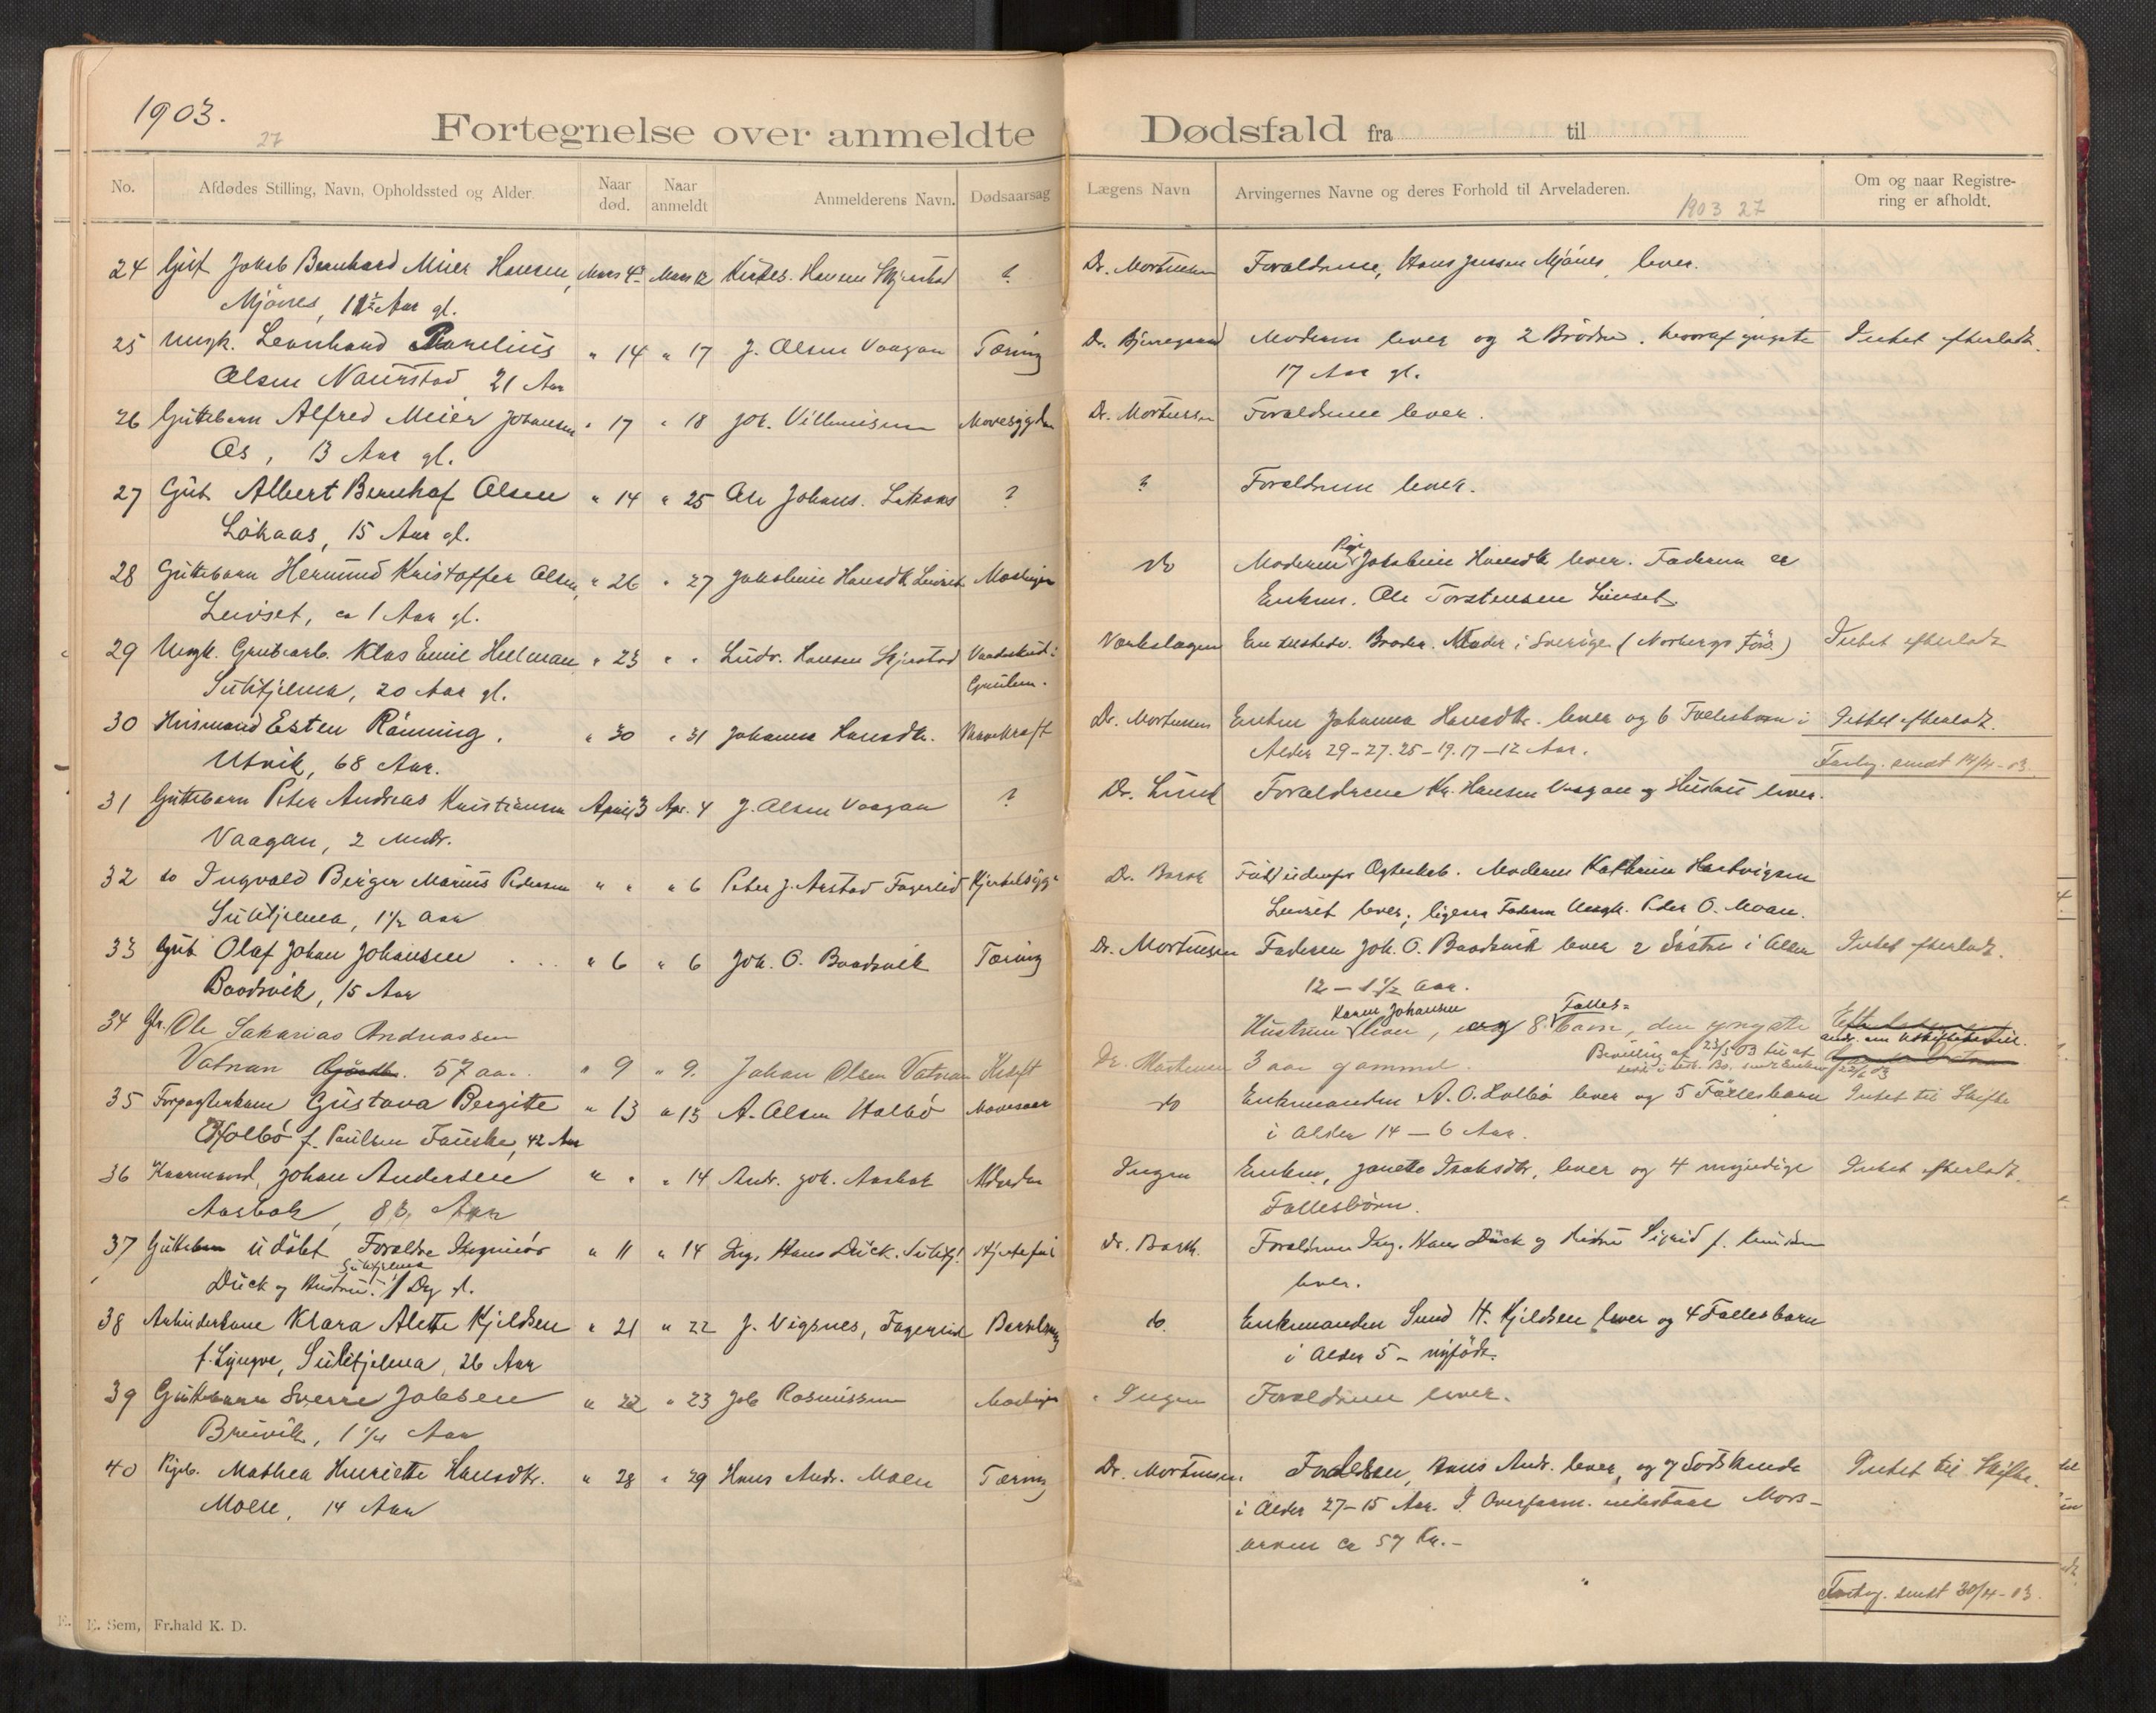 1903.
27
Fortegnelse over anmeldte Dødsfald fra til
No. Afdødes Stilling, Navn, Opholdssted og Alder. Naar død. Naar anmeldt Anmelderens Navn. Dødsaarsag Lægens Navn Arvingernes Navne og deres Forhold til Arveladeren. Om og naar Registrering er afholdt.
1903 27
24 Gut Jakob Bernhard Meier Hansen, Mars 4 Mars 12 Hansen Skjerstad ? Dr. Mortensen Forældrene, Hans Jensen Mjönes, lever.
Mjönes, 11½ Aar gl.
25 Ungk. Leonhard Kornelius " 14 " 17 J. Olsen Vaagan Tæring Dr. Bjerregaard Moderen lever og 2 Brödre, hvoraf yngste Intet efterladt.
Olsen Naurstad 21 Aar 17 Aar gl.
26 Guttebarn Alfred Meier Johansen " 17 " 18 Joh. Villumsen Mavesygdom Dr. Mortensen Forældrene lever.
Os, 13 Aar gl.
27 Gut Albert Bernhof Olsen " 14 " 25 Ole Johans. Lökaas ? ? Forældrene lever.
Lökaas, 15 Aar gl.
Pige
28 Guttebarn Hermund Kristoffer Olsen, " 26 " 27 Jakobine Hansdtr. Leivset Mæslinger do Moderen Jakobine Hansdtr lever. Faderen er
Leivset, ca 1 Aar gl. Enkem. Ole Torstensen Leivset.
29 Ungk. Grubearb. Klas Emil Hulman " 23 " " Ludv. Hansen Skjerstad Vaadeskud i Værkslægen En tilstede. Broder. Moder i Sverige (Norbergs Förs.) Intet efterladt
Sulitjelma, 20 Aar gl. Gruben.
30 Husmand Esten Rönning. " 30 " 31 Johanna Hansdtr. Mavekræft Dr. Mortensen Enken Johanna Hansdtr. lever og 6 Fællesbarn i Intet efterladt.
Utvik, 68 Aar. Alder 29-27-25-19-17-12 Aar. Forteg. sendt 14/4-03.
31 Guttebarn Peter Andreas Kristiansen April 3 Apr. 4 J. Olsen Vaagan ? Dr. Lund Forældrene Kr. Hansen Vaagan og Hustru lever.
Vaagan, 2 Mndr.
32 do Ingvald Berger Marius Pedersen " " " 6 Peter J. Arstad Fagerlid Kjertelsyge Dr. Barth Född udenfor Ægteskab. Moderen Kathrine Hartvigsen
Sulitjelma, 1½ aar Leivset lever; ligesaa Faderen Ungk. Peder O. Moan.
33 Gut Olaf Johan Johansen " 6 " 6 Joh. O. Baadsvik Tæring Dr. Mortensen Faderen Joh. O. Baadsvik lever 2 Söstre i Alder Intet efterladt.
Baadsvik, 15 Aar 12 - 1½ aar.
Karen Johansen Fælles-
34 Gr. Ole Sakarias Andreassen Hustruen lever, og 8 barn, den yngste
Vatnan 57 aar. " 9 " 9. Johan Olsen Vatnan Kræft Dr. Mortensen 3 aar gammel. Bevilling af 23/5 03 til at
35 Forpagterkone Gustava Bergitte " 13 " 13 A. Olsen Holbö Mavesaar do Enkemanden A. O. Holbö lever og 5 Fællesbarn Intet til Skifte
Holbö f. Paulsen Fauske, 42 Aar i Alder 14 - 6 Aar.
36 Kaarmand, Johan Andersen " " " 14 Andr. Joh. Aasbak Alderdom Ingen Enken, Janetta Isaksdtr, lever og 4 myndige Intet efterladt.
Aasbak, 83 Aar Fællesbörn.
37 Guttebarn udöbt Forældre Ingeniör " 11 " 14 Ing. Hans Dück. Sulitj. Hjertefeil Dr. Barth. Forældrene Ing. Hans Dück og Hustru Sigrid f. Knudsen
Sulitjelma
Dück og Hustru. 1 Dag gl. lever.
38 Arbeiderkone Klara Alette Kjeldsen " 21 " 22 J. Vigsnes, Fagerlid Barselseng do. Enkemanden Sund H. Kjeldsen lever og 4 Fællesbarn
f. Lyngve, Sulitjelma, 26 Aar i Alder 5 - nyfödt.
39 Guttebarn Sverre Jobsen " 22 " 23 Job Rasmussen Mæslinger Ingen Forældrene lever.
Breivik, 1¼ Aar
40 Pigeb. Mathea Henriette Hansdtr. " 28 " 29 Hans Andr. Moen Tæring Dr. Mortensen Forælderen, Hans Andr. lever, og 7 Södskende Intet til Skifte.
Moen, 14 Aar i Alder 27-15 Aar. I Overform. indestaar Mors-
arven ca 57 Kr.-
Forteg. sendt 30/4-03.
E. Sem, Fr.hald K. D.